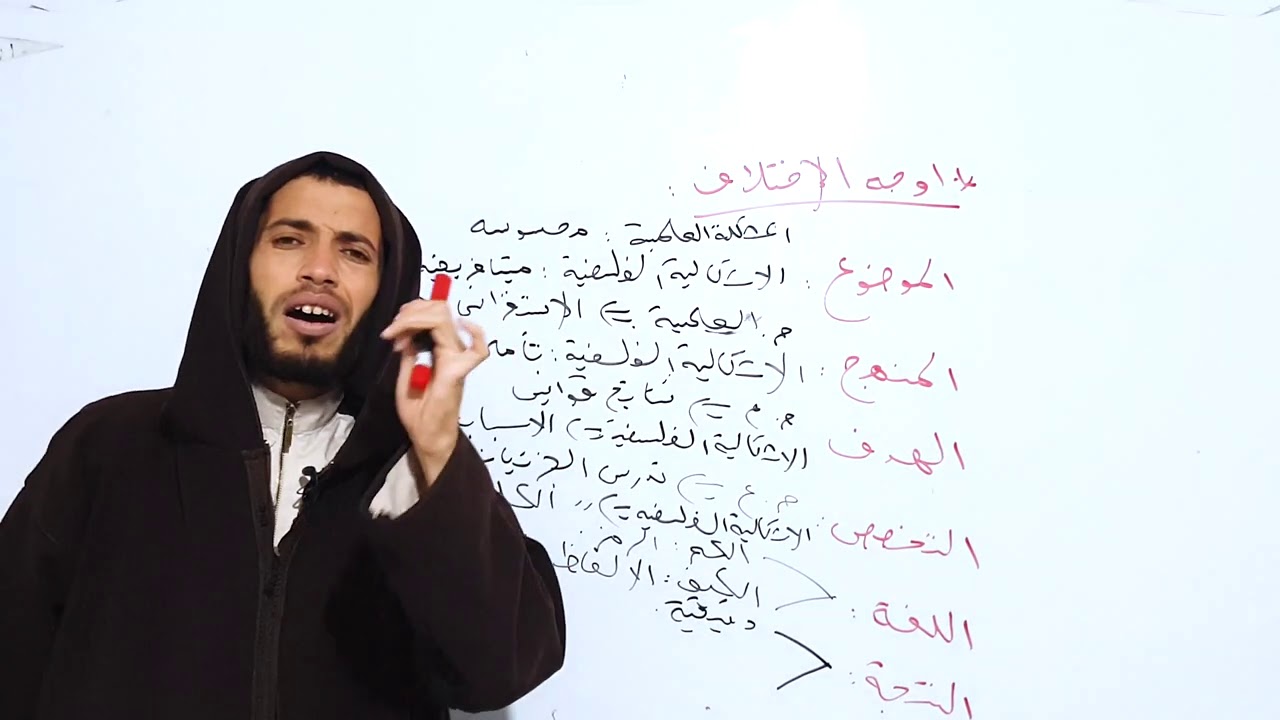 * اوجه الاختلاف :
المشكلة العلمية : محسوسه
الموضوع : الاشكالية الفلسفية : ميتافيزيقية
م. العلمية => الاستقرائي
المنهج : الاشكالية الفلسفية : تأمل
م. ع => نتائج قوانين
الهدف الاشكالية الفلسفية => الاسباب
م. ع => تدرس الجزئيات
التخصص : الاشكالية الفلسفية => ,,
الكم : الرمز
اللغة : الكيف : الالفاظ
دقيقية
النتجة :